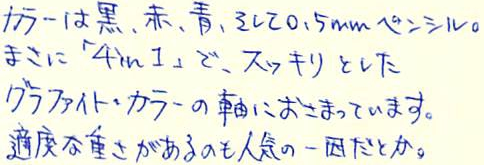 カラーは黒、赤、青、そして0.5mmペンシル。
まさに「4in1」で、スッキリとした
グラファイト・カラーの軸におさまっています。
適度な重さがあるのも人気の一因だとか。